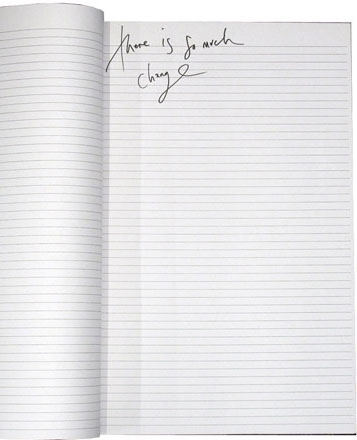 there is so much
change